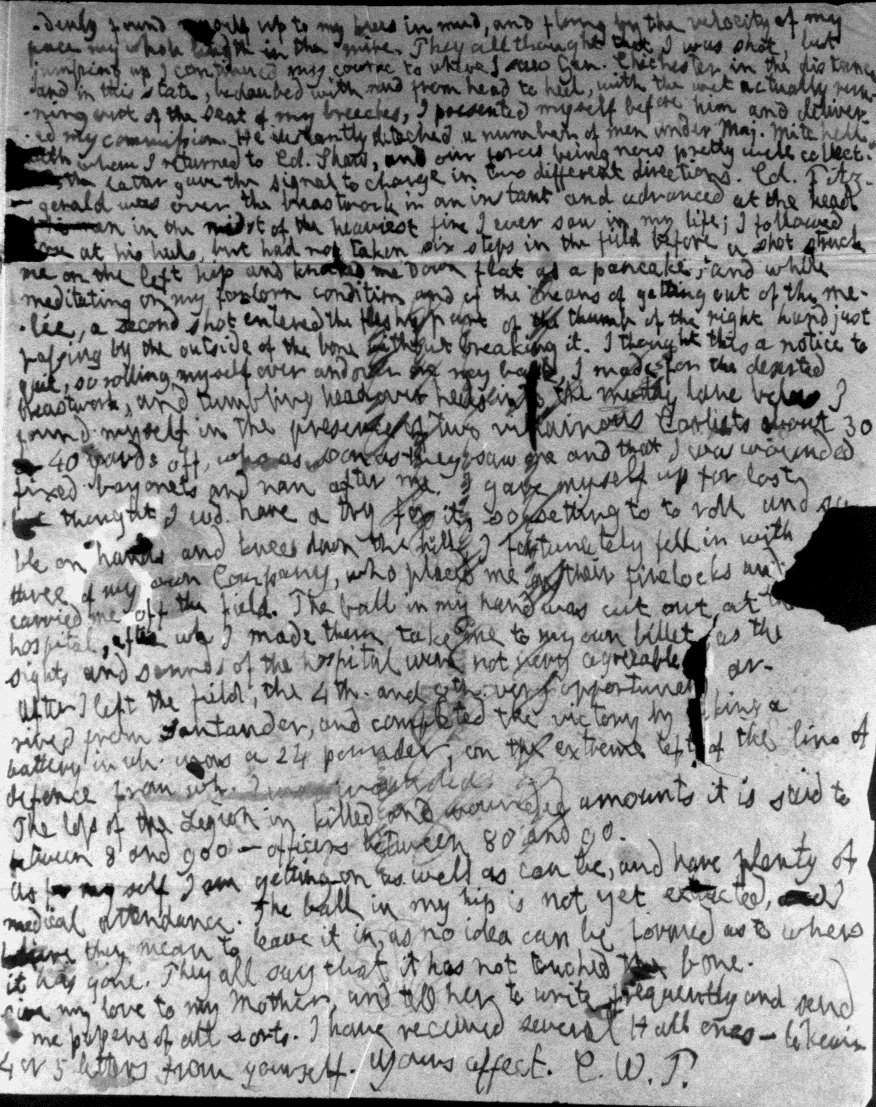 .denly found myself up to my knees in mud, and flung by the velocity of my
pace my whole length in the mire. They all thought that I was shot, but
jumping up I continued my course to where I saw Gen. Chichester in the distance
and in this state, bedaubed with mud from head to heel, with the wet actually run-
.ning out of the seat of my breeches, I presented myself before him and deliver-
.ed my commission. He instantly detached a number of men under Maj. Mitchell
with whom I returned to Col. Shaw, and our forces being now pretty well collect.
the latter gave the signal to charge in two different directions. Col. Fitz-
gerald was over the breastwork in an instant and advanced at the head
in the midst of the heaviest fire I ever saw in my life; I followed
at his heels, but had not taken six steps in the field before a shot struck
me on the left hip and knocked me down flat as a pancake; and while
meditating on my forlorn condition and of the means of getting out of the me-
.lée, a second shot entered the fleshy part of the thumb of the right hand just
passing by the outside of the bone without breaking it. I thought this a notice to
quit, so rolling myself over and over on my back, I made for the deserted
breastwork, and tumbling head over heels in the muddy lane below I
found myself in the presence of two villainous Carlists about 30
40 yards off, who as soon as they saw me and that I was wounded
fixed bayonets and ran after me. I gave myself up for lost,
thought I wd. have a try for it, so setting to to roll and
ble on hands and knees down the hill, I fortunately fell in with
three of my own Company, who placed me on their firelocks and
carried me off the field. The ball in my hand was cut out at the
hospital, after wh I made them take me to my own billet, as the
sights and sounds of the hospital were not very agreeable
after I left the field, the 4th. and very opportunely ar-
rived from Santander, and completed the victory by taking a
battery in wh. was a 24 pounder, on the extreme left of the line of
defence from wh. I was wounded.
The loss of the Legion in killed and wounded amounts it is said to
between 8 and 900 — officers between 80 and 90.
As to my self I am getting on as well as can be, and have plenty of
medical attendance. The ball in my hip is not yet extracted, and I
believe they mean to leave it in, as no idea can be formed as to where
it has gone. They all say that it has not touched the bone.
Give my love to my Mother, and tell her to write frequently and send
me papers of all sorts. I have received several ones — likewise
4 or 5 letters from yourself. Yours affect. C. W. T.